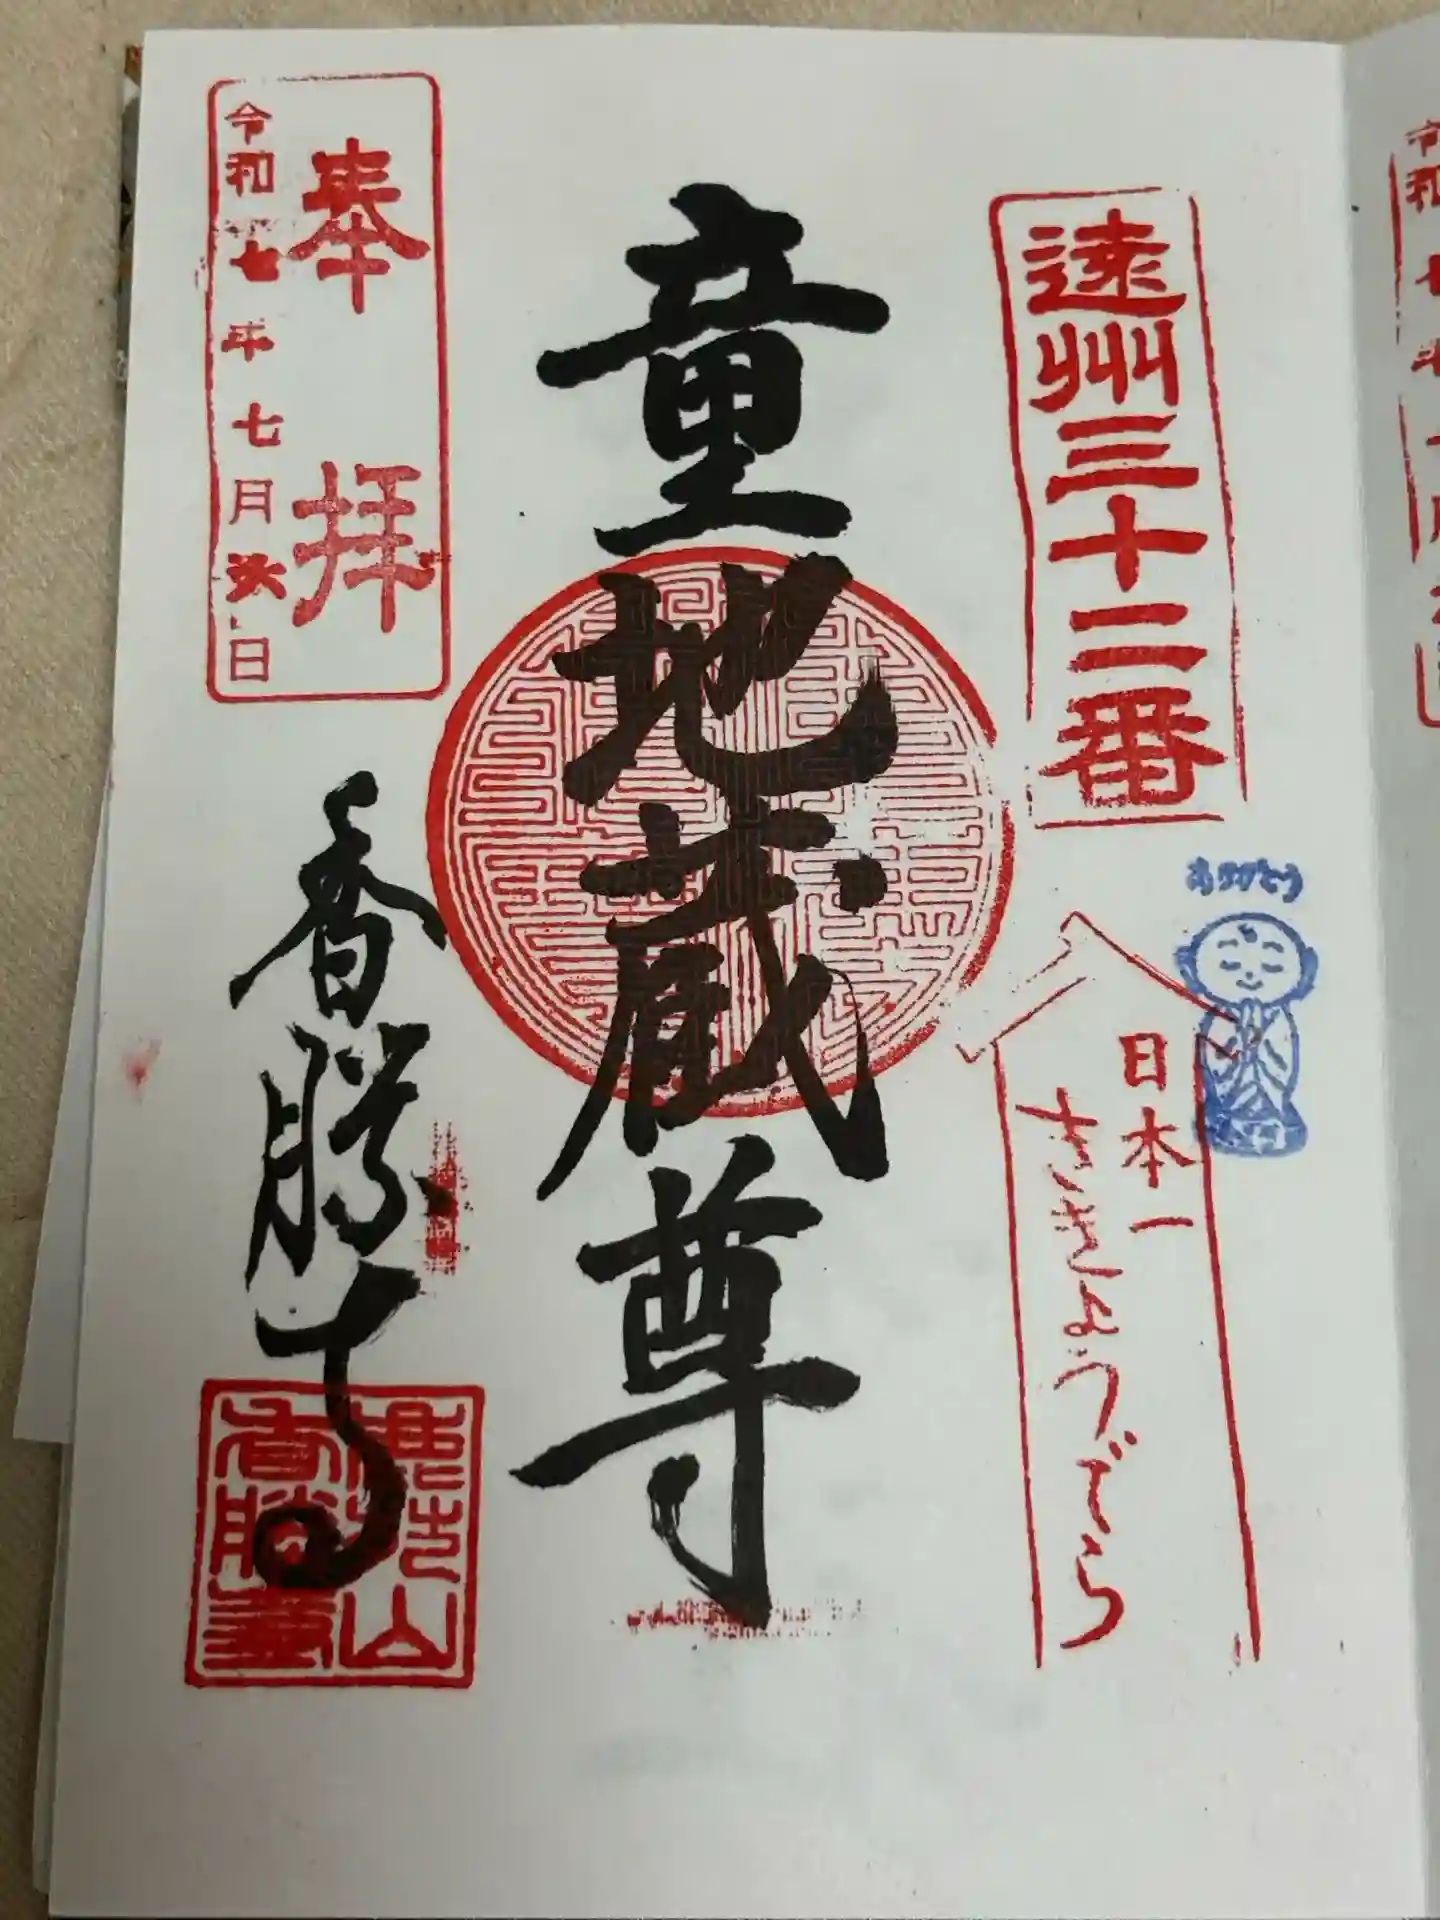 遠州三十三番
ありがとう
日本一
ききょうでら
童地蔵尊
奉拝
令和七年七月六日
香勝寺
鹿苑山
香勝寺